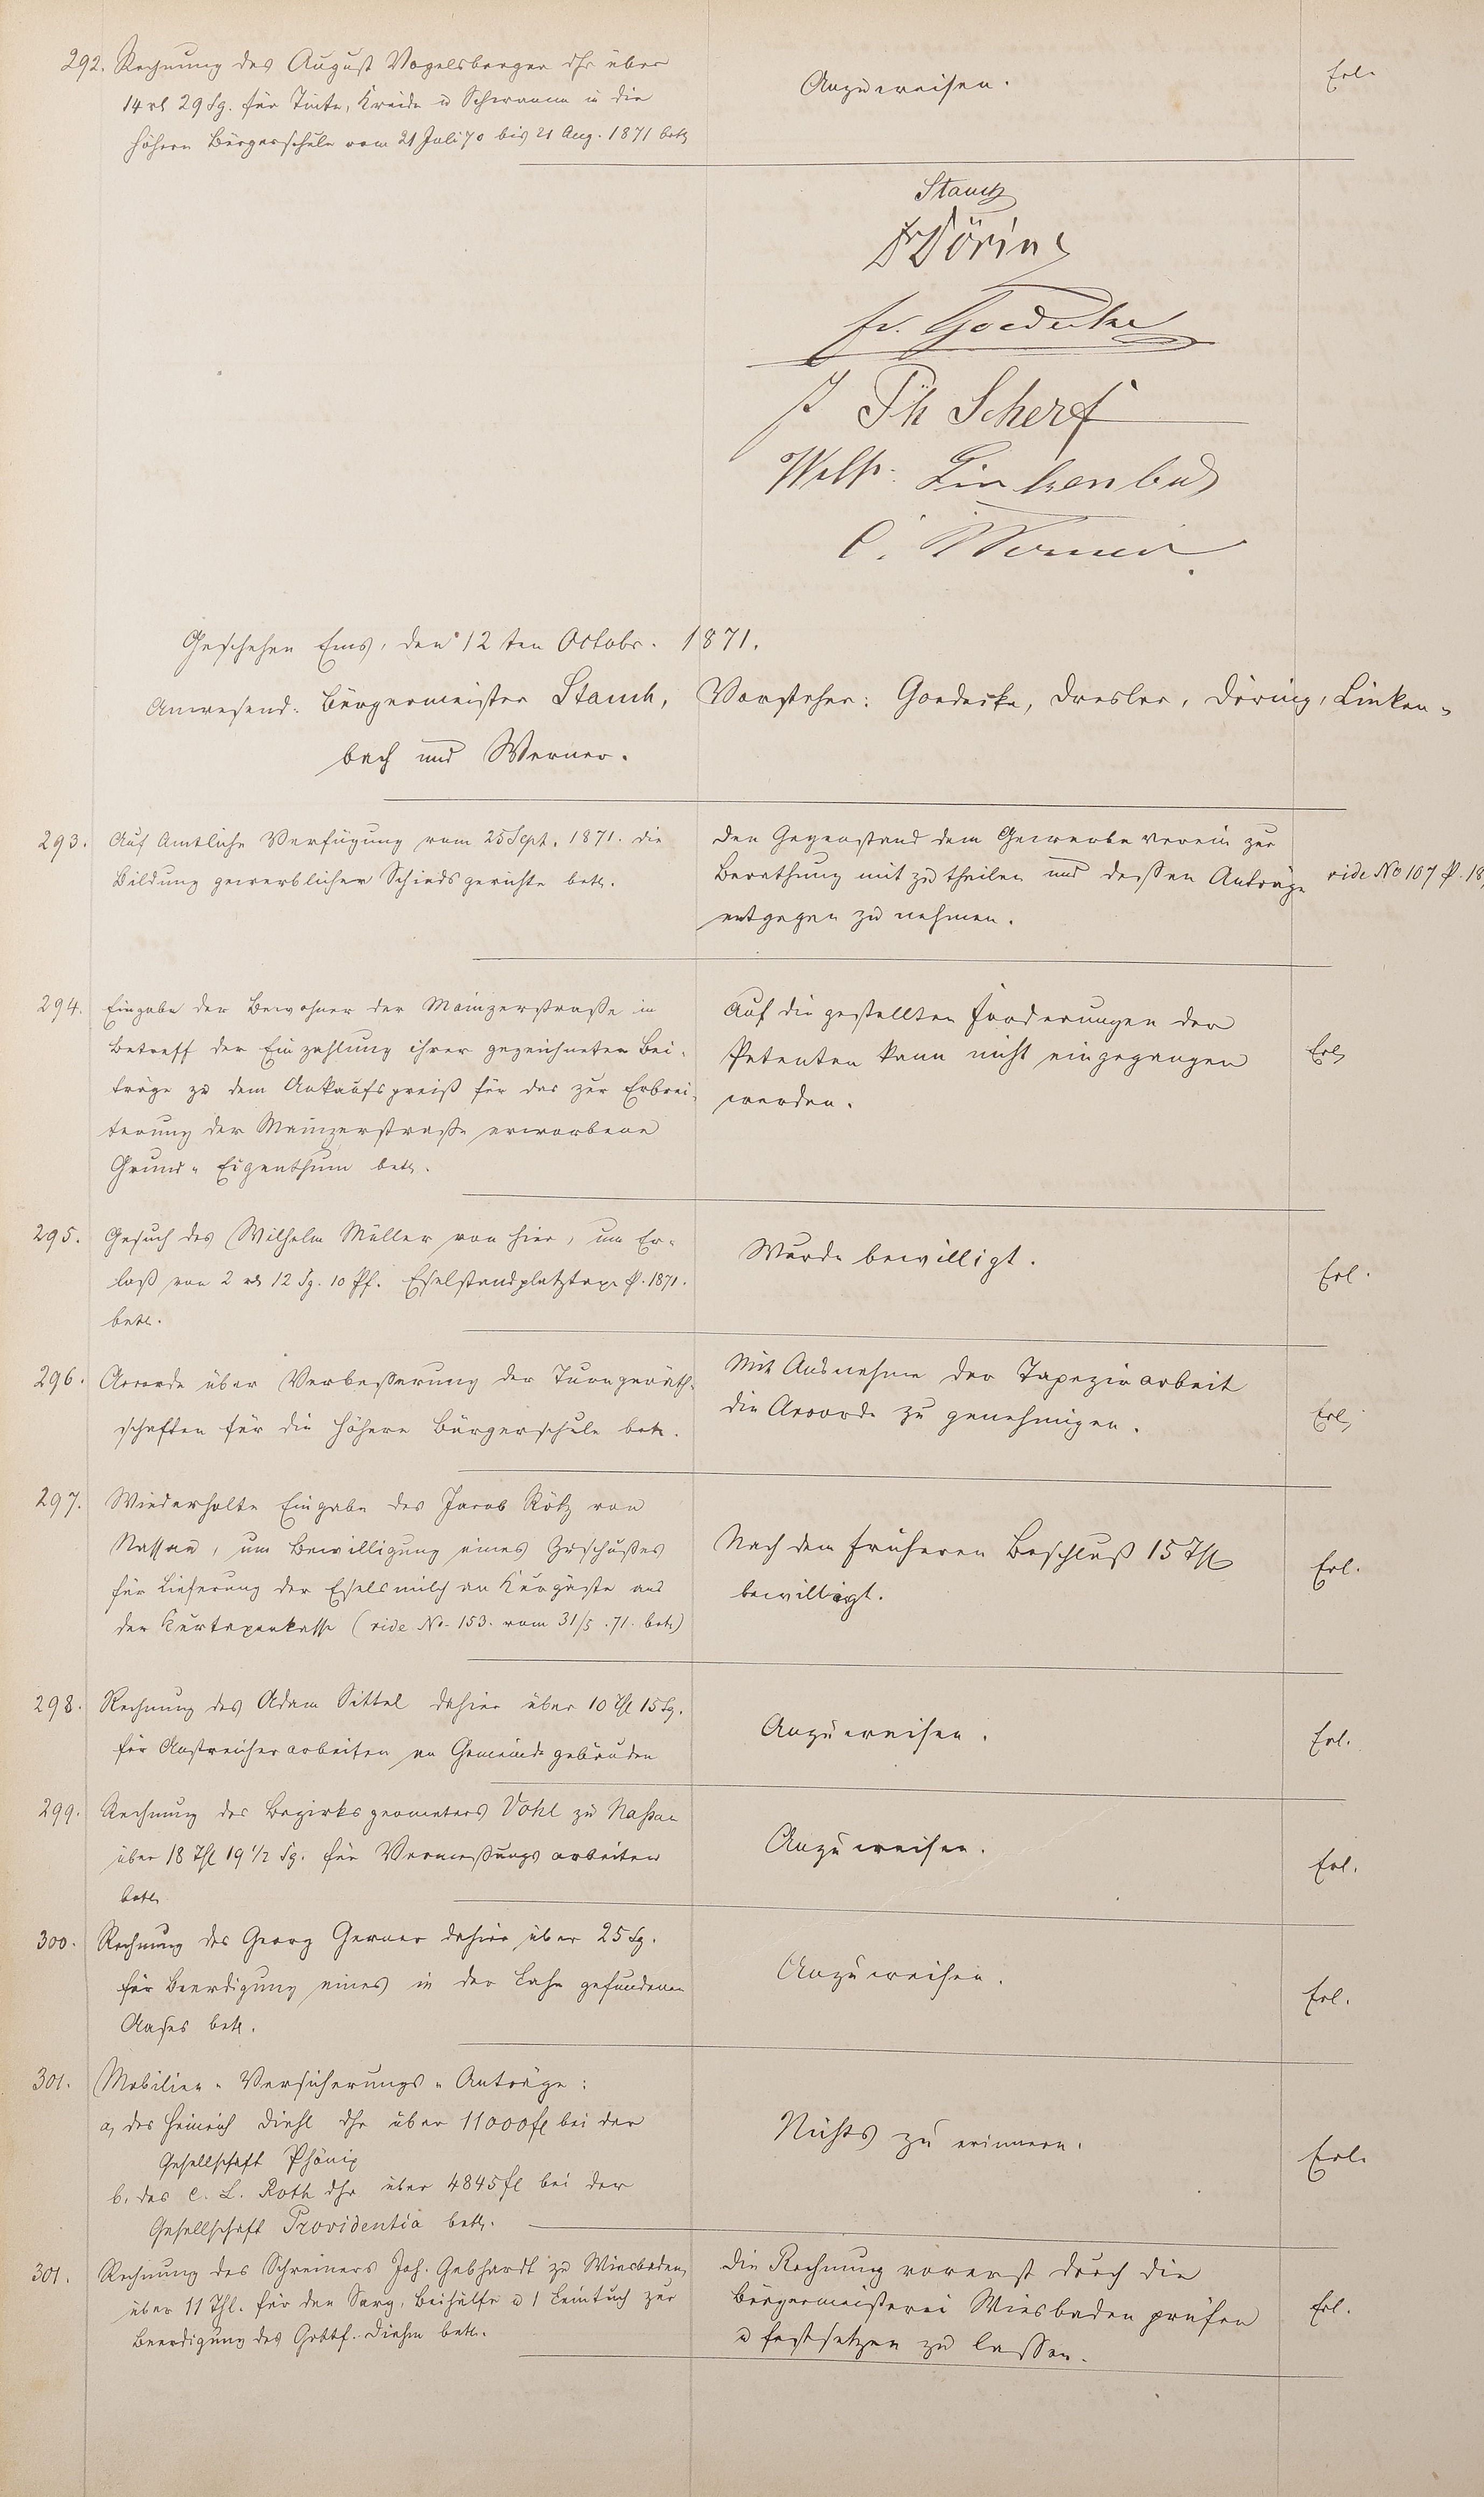 292. Rechnung des August Vogelsberger dhr über
14 rl 29 Sg. für Tinte, Kreide u Schwamm in die
höhere Bürgerschule vom 21 Juli 70 bis 21 Aug. 1871 betr.
Anzuweisen.
Erl.
Stauch
Fr Döring
Fr. Goedecke
J Ph Scherf
Wilh. Linkenbach
C. Werner.
Geschehen Ems, den 12ten Octobr. 1871.
Anwesend: Bürgermeister Stauch, Vorsteher: Goedecke, Dresler, Döring, Linken-
bach und Werner.
293. Auf Amtliche Verfügung vom 25 Sept. 1871. die
Bildung gewerblicher Schiedsgerichte betr.
Den Gegenstand dem Gewerbe verein zur
Berathung mit zu theilen und dessen Anträge
entgegen zu nehmen.
vide No 107 p. 18
294. Eingabe der Bewohner der Mainzerstraße in
Betreff der Einzahlung ihrer gezeichneten Bei-
träge zu dem Ankaufspreiß für das zur Erbrei-
terung der Mainzerstraße erworbene
Grund-Eigenthum betr.
Auf die gestellten Forderungen der
Petenten kann nicht eingegangen
werden.
Erl.
295. Gesuch des Wilhelm Müller von hier, um Er-
laß von 2 rl 12 Sg. 10 Pf. Eselstandplatztaxe p. 1871.
betr.
Wurde bewilligt.
Erl.
296. Accorde über Verbeßerung der Turngeräth-
schaften für die höhere Bürgerschule betr.
Mit Ausnahme der Tapezirarbeit
die Accorde zu genehmigen.
Erl.
297. Wiederholte Eingabe des Jacob Rötz von
Nassau, um Bewilligung eines Zuschußes
für Lieferung der Eselsmilch an Kurgäste aus
der Kurtaxenkasse (vide No. 153. vom 31/5. 71. betr)
Nach dem früheren Beschluß 15 Thl
bewilligt.
Erl.
298. Rechnung des Adam Sittel dahier über 10 Thl 15 Sg.
für Anstreicherarbeiten an Gemeindegebäuden
Anzuweisen.
Erl.
299. Rechnung des Bezirksgeometers Vohl zu Naßau
über 18 Thl 19 1/2 Sg. für Vermeßungsarbeiten
betr.
Anzuweisen.
Erl.
300. Rechnung des Georg Gerner dahier über 25 Sg.
für Beerdigung eines in der Lahn gefundenen
Aases betr.
Anzuweisen.
Erl.
301. Mobilien-Versicherungs-Anträge:
a, des Heinrich Diehl dhr über 11000 fl bei der
Gesellschaft Phönix
b, des C. L. Roth dhr über 4845 fl bei der
Gesellschaft Providentia betr.
Nichts zu erinnern.
Erl.
301. Rechnung des Schreiners Joh. Gebhardt zu Wiesbaden
über 11 Thl. für den Sarg, Beihülfe u 1 Leintuch zur
Beerdigung des Gottf. Diehm betr.
Die Rechnung vorerst durch die
Bürgermeisterei Wiesbaden prüfen
u festsetzen zu lassen.
Erl.